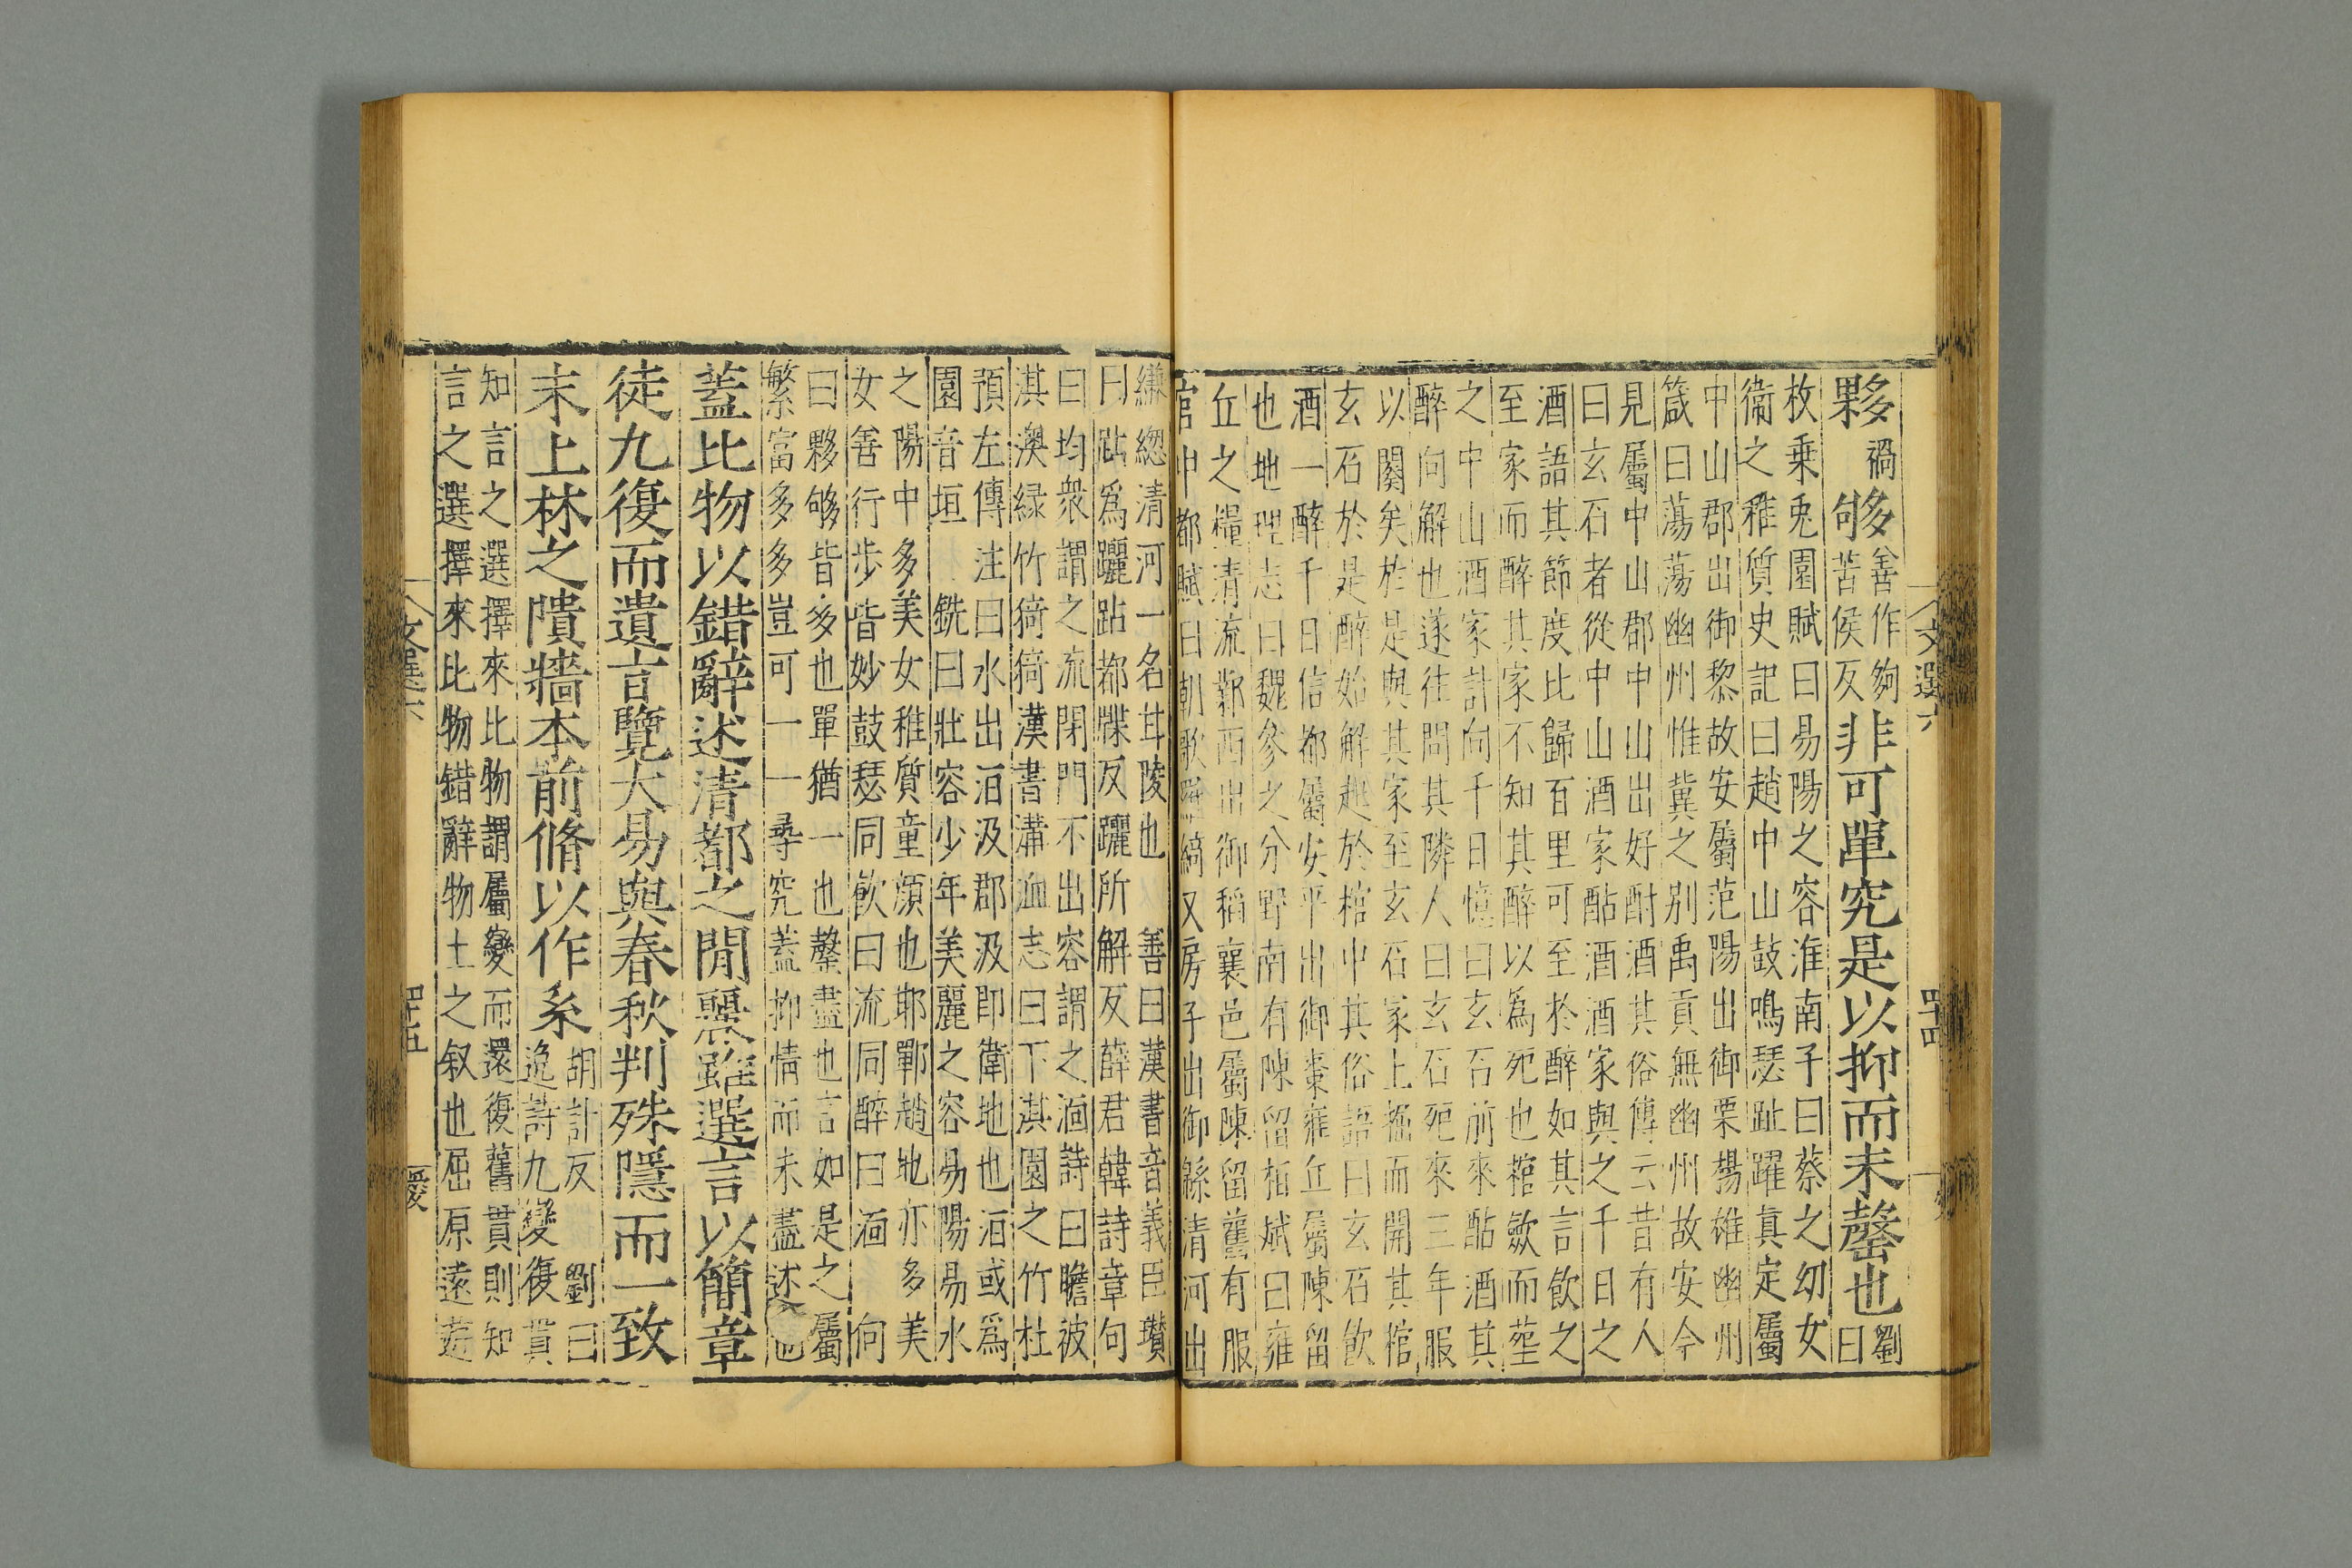 夥禍够善作夠
苦侯反非可單究是以抑而未罄也劉
曰
枚乗兎園賦曰易陽之容淮南子曰蔡之幼女
衛之稚質史記曰趙中山鼓鳴瑟趾躍真定屬
中山郡出御黎故安屬范陽出御栗揚雄幽州
箴曰蕩蕩幽州惟冀之别禹貢無幽州故安今
見屬中山郡中山出好酎酒其俗傳云昔有人
曰玄石者從中山酒家酤酒酒家與之千日之
酒語其節度比歸百里可至於醉如其言飲之
至家而醉其家不知其醉以為死也棺歛而葬
之中山酒家計向千日憶曰玄石前來酤酒其
醉向解也遂往問其隣人曰玄石死來三年服
以闋矣於是與其家至玄石家上掘而開其棺
玄石於是醉始解起於棺中其俗語曰玄石飲
酒一醉千日信都屬安平出御棗雍丘屬陳留
也地理志曰魏參之分野南有陳留栢賦曰雍
丘之糧清流鄴西出御稻襄邑屬陳留舊有服
官中都賦曰朝歌縞又房子出御緜清河出
縑緫清河一名甘陵也善曰漢書音義臣瓚
曰跕爲躧跕都牒反躧所解反薛君韓詩章句
曰均衆謂之流閉門不出容謂之湎詩曰瞻彼
淇澳緑竹猗猗漢書溝洫志曰下淇園之竹杜
預左傳注曰水出洹汲郡汲即衛地也洹或爲
園音垣銑曰壯容少年美麗之容易陽易水
之陽中多美女稚質童顔也邯鄲趙地亦多美
女善行步皆妙鼓瑟同飲曰流同醉曰湎向
曰夥够皆多也單猶一也罄盡也言如是之屬
繁富多多豈可一一尋究蓋抑情而未盡述也
蓋比物以錯辭述清都之閒麗雖選言以簡章
徒九復而遺言覽大易與春秋判殊隱而一致
末上林之隤牆本前脩以作系胡計反劉曰
逸詩九變復貫
知言之選擇來比物謂屬變而還復舊貫則知
言之選擇來比物錯辭物土之叙也屈原遠遊
文選六
四十四
文選六
四十五